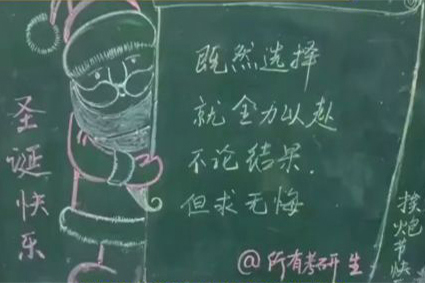 圣诞快乐
既然选择
就全力以赴
不论结果.
但求无悔
@所有考研生
挨炮节快